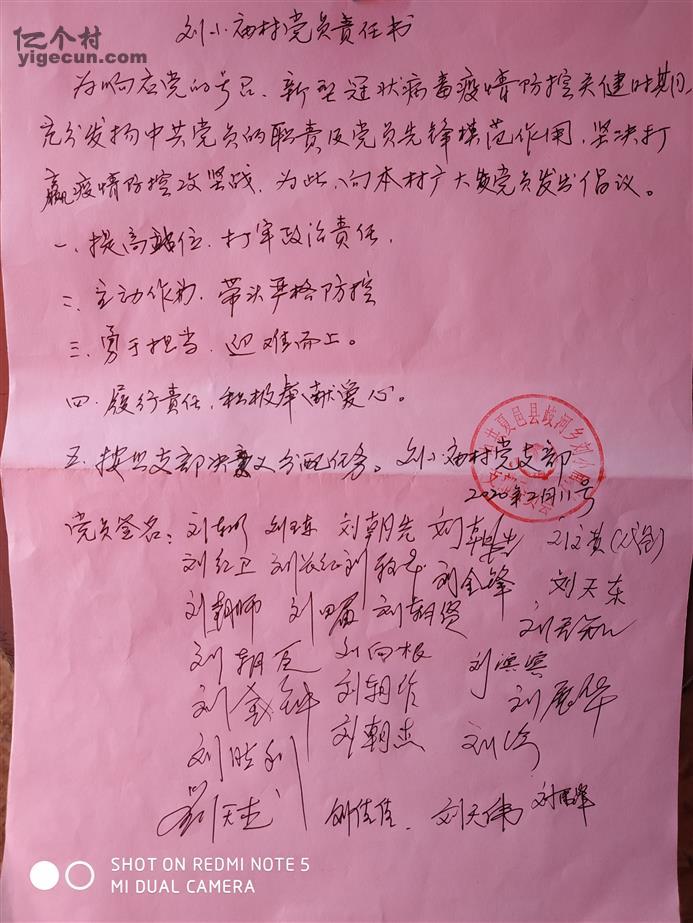 亿个村
yigecun.com
刘小庙村党员责任书
为响应党的号召、新型冠状病毒疫情防控关健时期,
充分发扬中共党员的职责及党员先锋模范作用,坚决打
赢疫情防控攻坚战,为此,向本村广大党员发出倡议。
一、提高站位,打牢政治责任,
二、主动作为,带头严格防控
三、勇于担当,迎难而上。
四、履行责任,积极奉献爱心。
五、按照支部决议分配任务。刘小庙村党支部
夏邑县歧河乡刘小庙
2020年2月11号
党员签名:刘 刘 刘朝先 刘 刘文英
刘红卫 刘长红 刘 刘金锋 刘天东
刘朝师 刘四届 刘朝贤 刘
刘朝 刘向根 刘滨滨
刘 刘朝 刘展华
刘胜利 刘朝杰 刘
刘天 刘佳佳. 刘天伟 刘
SHOT ON REDMI NOTE 5
MI DUAL CAMERA